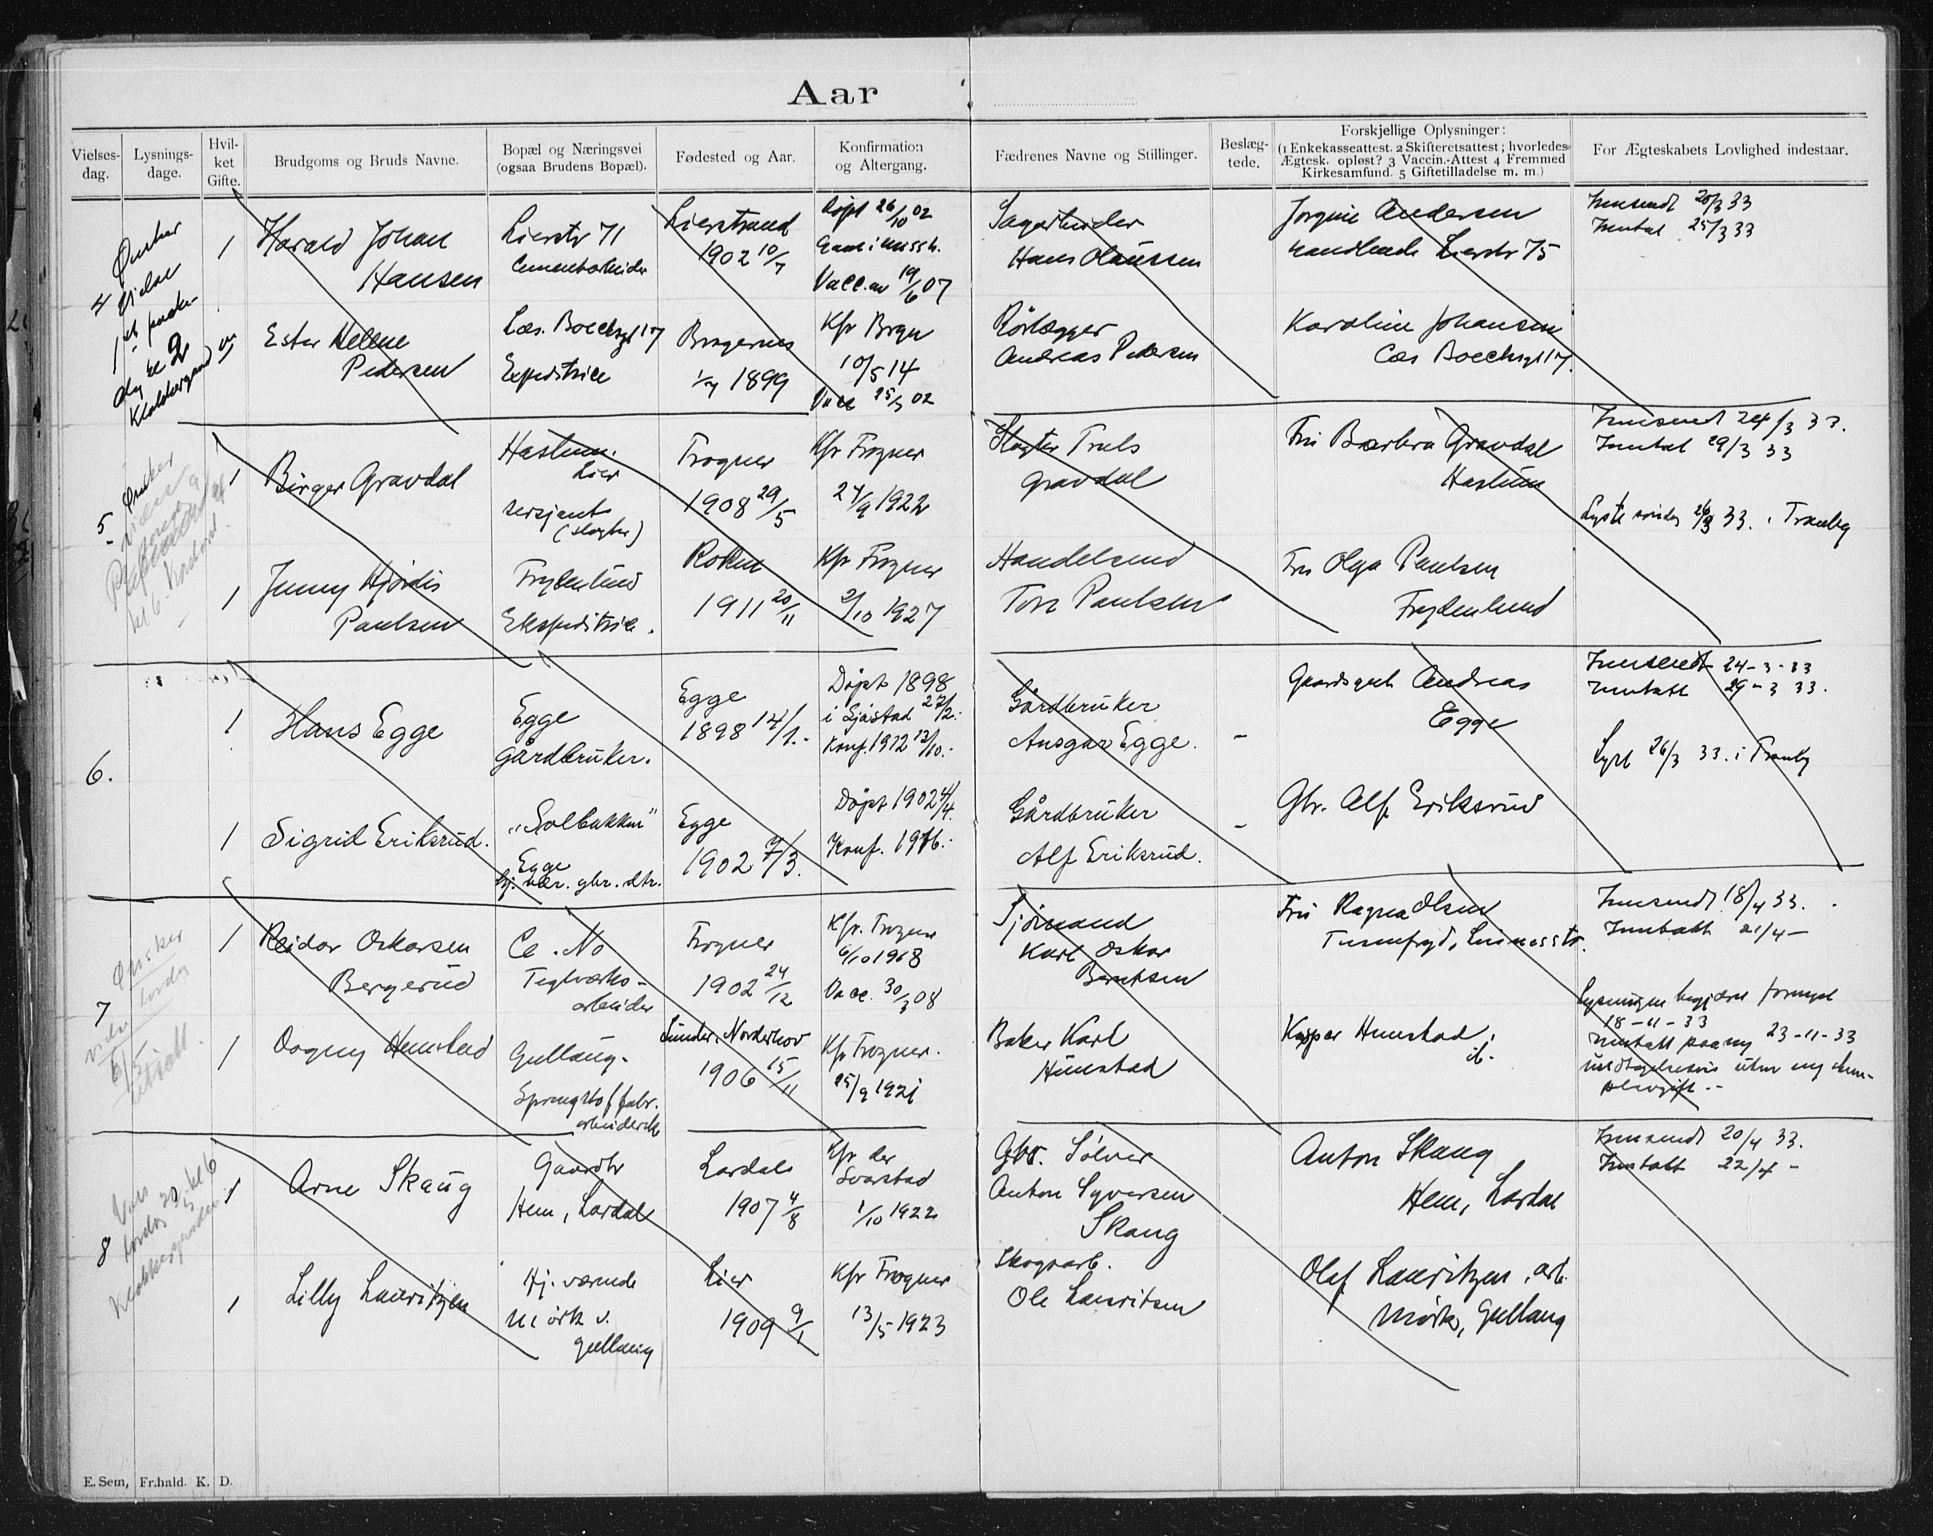 Aar
Vielses-dag.
Lysnings-dage.
Hvil-ket Gifte.
Brudgoms og Bruds Navne.
Bopæl og Næringsvei (ogsaa Brudens Bopæl).
Fødested og Aar.
Konfirmation og Altergang.
Fædrenes Navne og Stillinger.
Beslæg-tede.
Forskjellige Oplysninger: (1 Enkekasseattest. 2 Skifteretsattest; hvorledes Ægtesk. opløst? 3 Vaccin.-Attest 4 Fremmed Kirkesamfund. 5 Giftetilladelse m. m.)
For Ægteskabets Lovlighed indestaar.
4
1
Harald Johan
Hansen
Lierstr 71
Cementarbeider
Lierstrand
1902 10/7
Døpt 26/10 02
Vacc. av 19/6 07
Sagarbeider
Hans Olaussen
Jorgine Andersen
Lierstr 75
Innsendt 20/3 33
Inntat 25/3 33
Ester Helene
Pedersen
Cæs. Boecksgt 17
Expeditrice
Bragernes
1899
Kfr Brgn
10/5 14
Vacc 25/5 02
Rørlægger
Andreas Pedersen
Karoline Johansen
Cæs Boecksgt 17.
5
1
Birger Gravdal
Haslum.
Lier
sersjant
(slagter)
Frogner
1908 29/5
Kfr Frogner
24/9 1922
Slagter Truls
Gravdal
Fru Barbra Gravdal
Haslum
Innsendt 24/3 33.
Inntat 29/3 33
Lyst søndag 26/3 33. i Tranby
1
Jenny Hjørdis
Paulsen
Frydenlund
Ekspeditrice.
Røken
1911 20/11
Kfr Frogner
2/10 1927
Handelsmd
Tors Paulsen
Fru Olga Paulsen
Frydenlund
6.
1
Hans Egge
Egge
gårdbruker.
Egge
1898 14/1.-
Døpt 1898
i Sjåstad 27/2.-
Konf. 1912 13/10.-
Gårdbruker
Ansgar Egge.
-
Andreas
Egge
Innsendt 24-3-33
Inntatt 29-3 33.
Lyst 26/3 33. i Tranby
1
Sigrid Eriksrud.
"Solbakken"
Egge
hj. vær. gbr. dtr.
Egge
1902 7/3.
Døpt 1902 4/4.
Konf. 1916.-
Gårdbruker
Alf Eriksrud.
-
Gbr. Alf Eriksrud
7
1
Reidar Oskarsen
Bergerud
Teglverks-
arbeider
Frogner
1902 24/12
Kfr. Frogner
Vacc. 30/3 08
Sjømand
Karl Oskar
Berntsen
Fru Ragna Olsen
Innsendt 18/4 33.
Inntatt 21/4 -
1
Dagny Hemstad
Gullaug.
Sprengstoffabr.
arbeiderske
Norderhov
1906 15/11
Kfr Frogner.
25/9 1921
Baker Karl
Himstad
Kasper Himstad
Lysningen begjæres fornyet
18-11-33
Inntatt paa ny 23-11-33
8
1
Arne Skaug
Gaardbr
Hem, Lardal
Lardal
1907 4/8
Kfr der
Svarstad
1/10 1922
Gbr. Sølver
Anton Syversen
Skaug
Anton Skaug
Hem, Lardal
Innsendt 20/4 33.
Inntatt 22/4 -
1
Lilly Lauritzen
Hj. værende
Mørk v.
Gullaug
Lier
1909 9/1
Kfr Frogner
13/5 1923
Skogsarb.
Ole Lauritsen
Olaf Lauritzen, arb.
Mørk, Gullaug
E. Sem, Fr.hald. K. D.